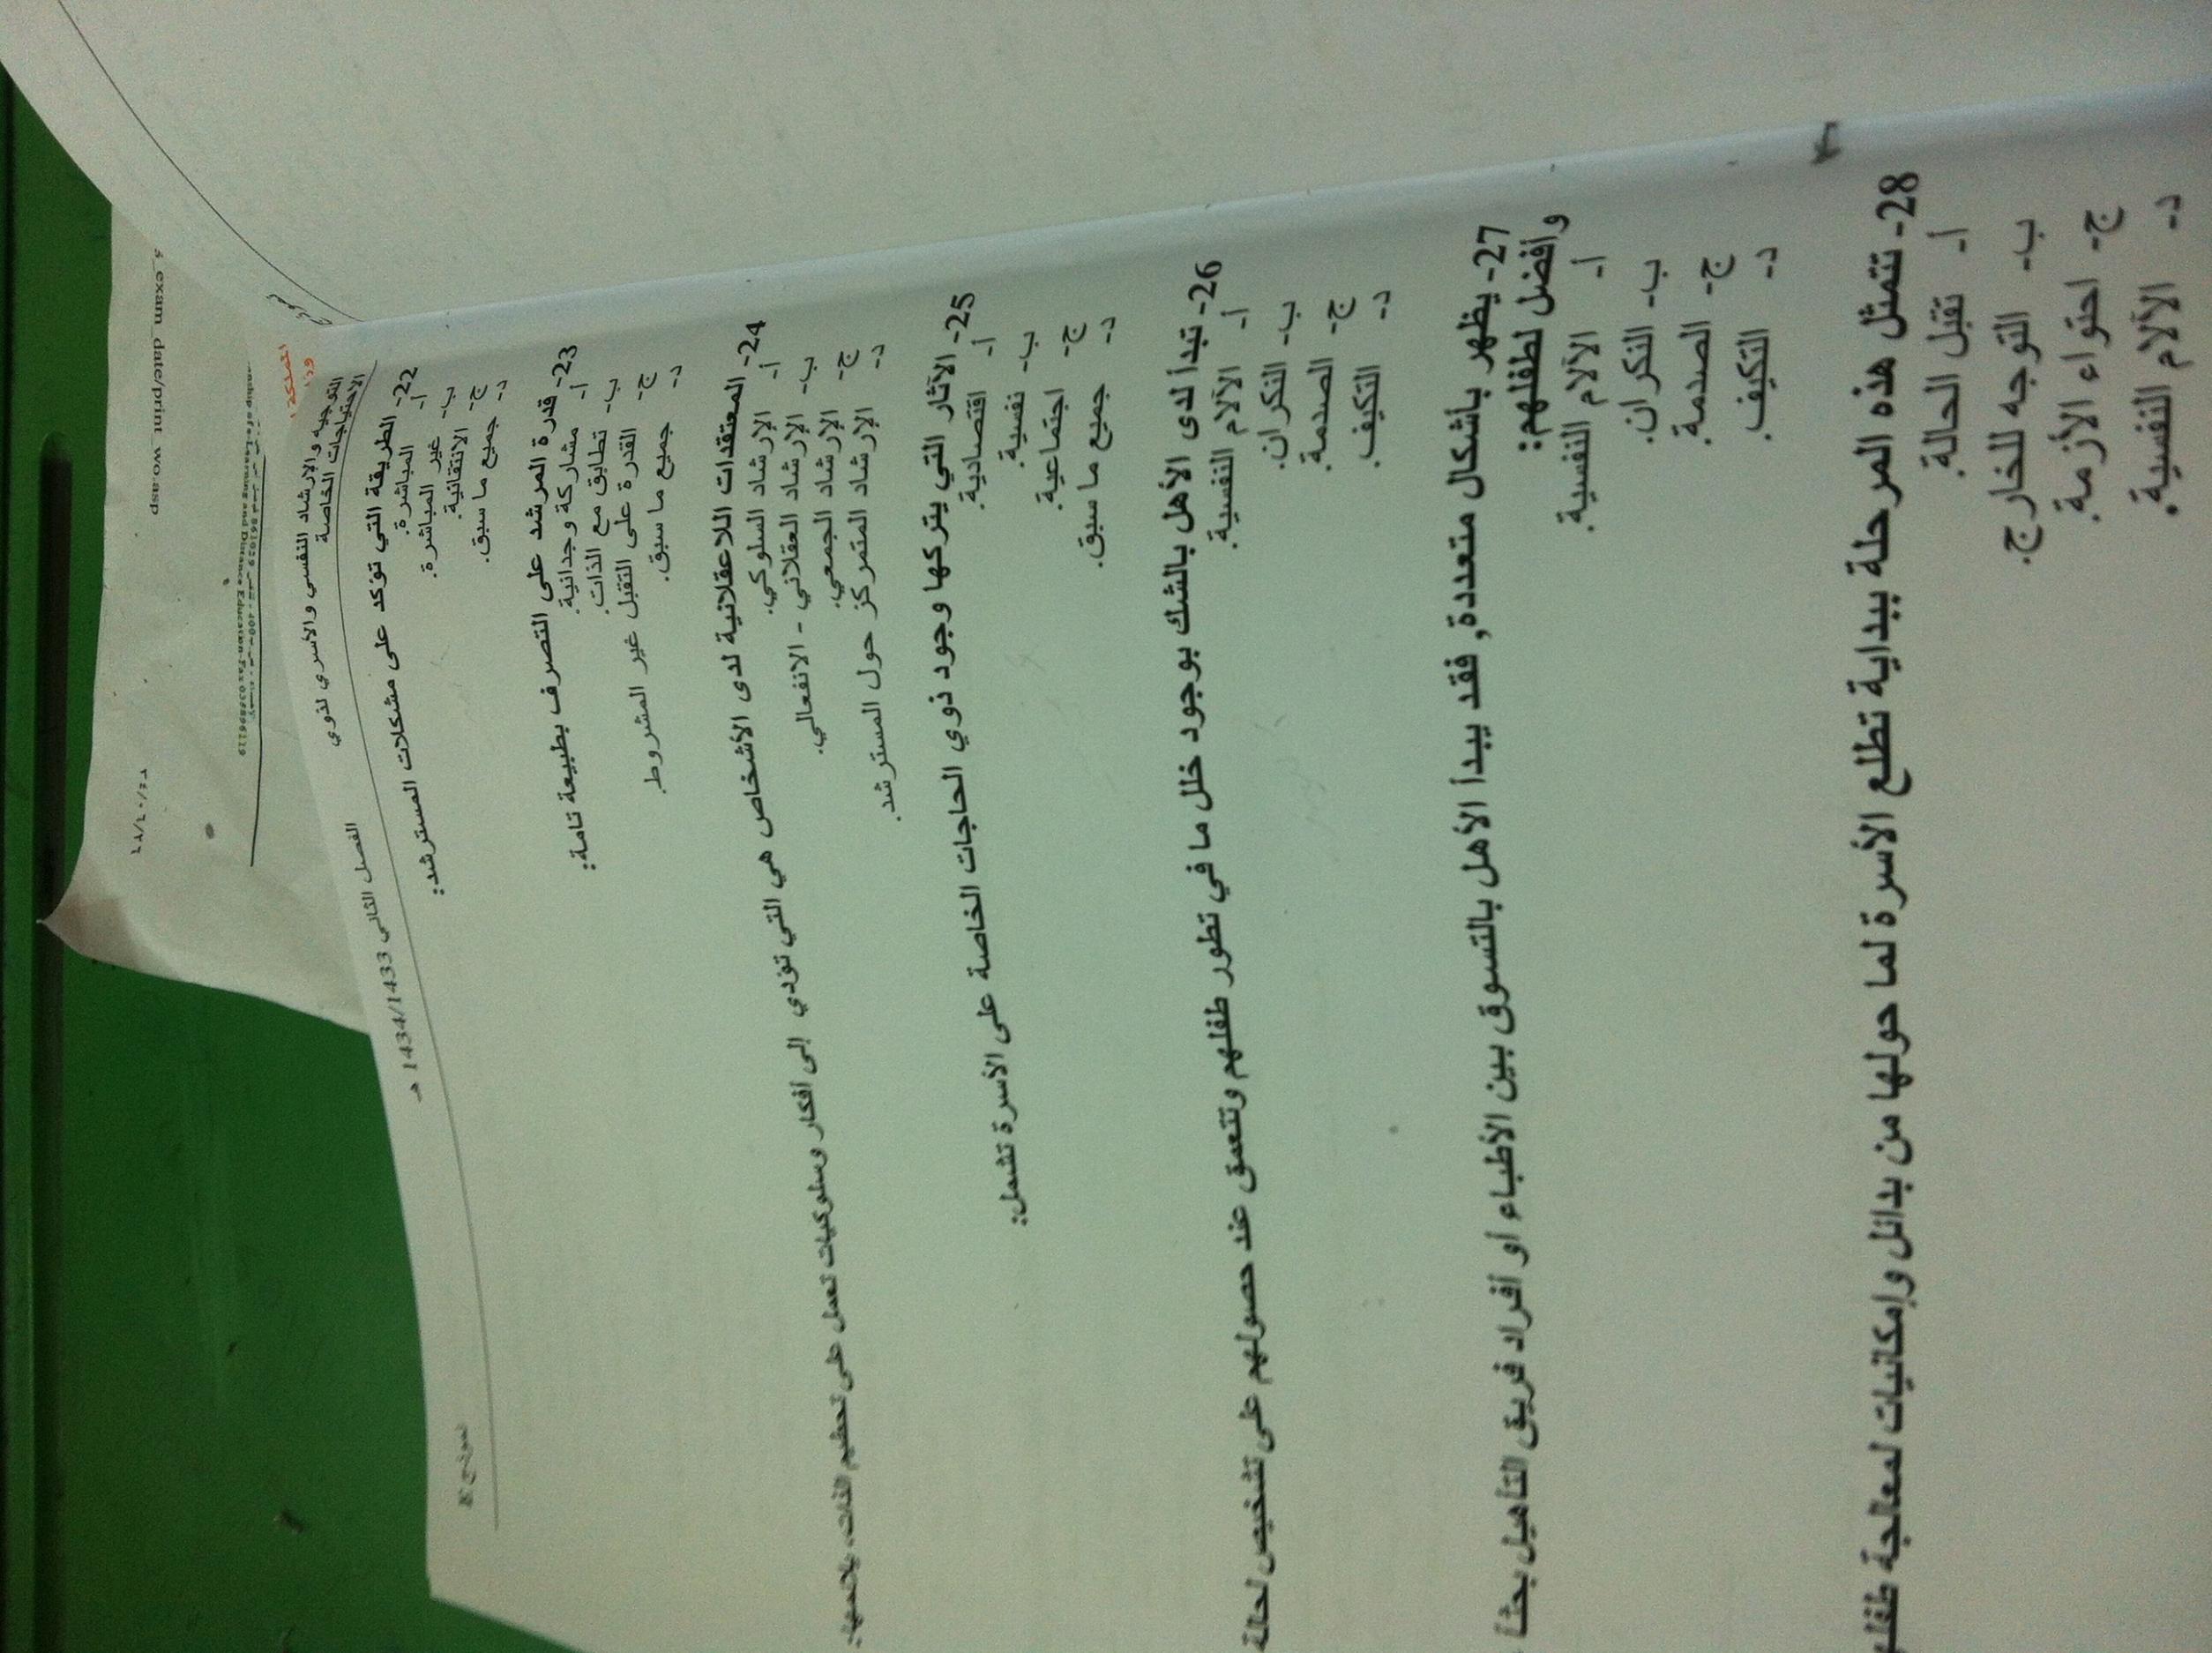 s_exam_date/print_wo.asp
التوجيه والإرشاد النفسي والأسري لذوي
الاحتياجات الخاصة
الفصل الثاني 1434/1433 هـ
نموذج E
22- الطريقة التي تؤكد على مشكلات المسترشد:
أ- المباشرة.
ب- غير المباشرة.
ج- الانتقائية.
د- جميع ما سبق.
23- قدرة المرشد على التصرف بطبيعة تامة:
أ- مشاركة وجدانية.
ب- تطابق مع الذات.
ج- القدرة على التقبل غير المشروط.
د- جميع ما سبق.
24- المعتقدات اللاعقلانية لدى الأشخاص هي التي تؤدي إلى أفكار وسلوكيات تعمل على تحطيم الذات،
أ- الإرشاد السلوكي.
ب- الإرشاد العقلاني - الانفعالي.
ج- الإرشاد الجمعي.
د- الإرشاد المتمركز حول المسترشد.
25- الآثار التي يتركها وجود ذوي الحاجات الخاصة على الأسرة تشمل:
أ- اقتصادية.
ب- نفسية.
ج- اجتماعية.
د- جميع ما سبق.
26- تبدأ لدى الأهل بالشك بوجود خلل ما في تطور طفلهم وتتعمق عند حصولهم على تشخيص لحالة
أ- الآلام النفسية.
ب- النكران.
ج- الصدمة.
د- التكيف.
27- يظهر بأشكال متعددة, فقد يبدأ الأهل بالتسوق بين الأطباء أو أفراد فريق التأهيل بحثاً
وأفضل لطفلهم:
أ- الآلام النفسية.
ب- النكران.
ج- الصدمة.
د- التكيف.
28- تتمثل هذه المرحلة ببداية تطلع الأسرة لما حولها من بدائل وإمكانيات لمعالجة
أ- تقبل الحالة.
ب- التوجه للخارج.
ج- احتواء الأزمة.
د- الآلام النفسية.